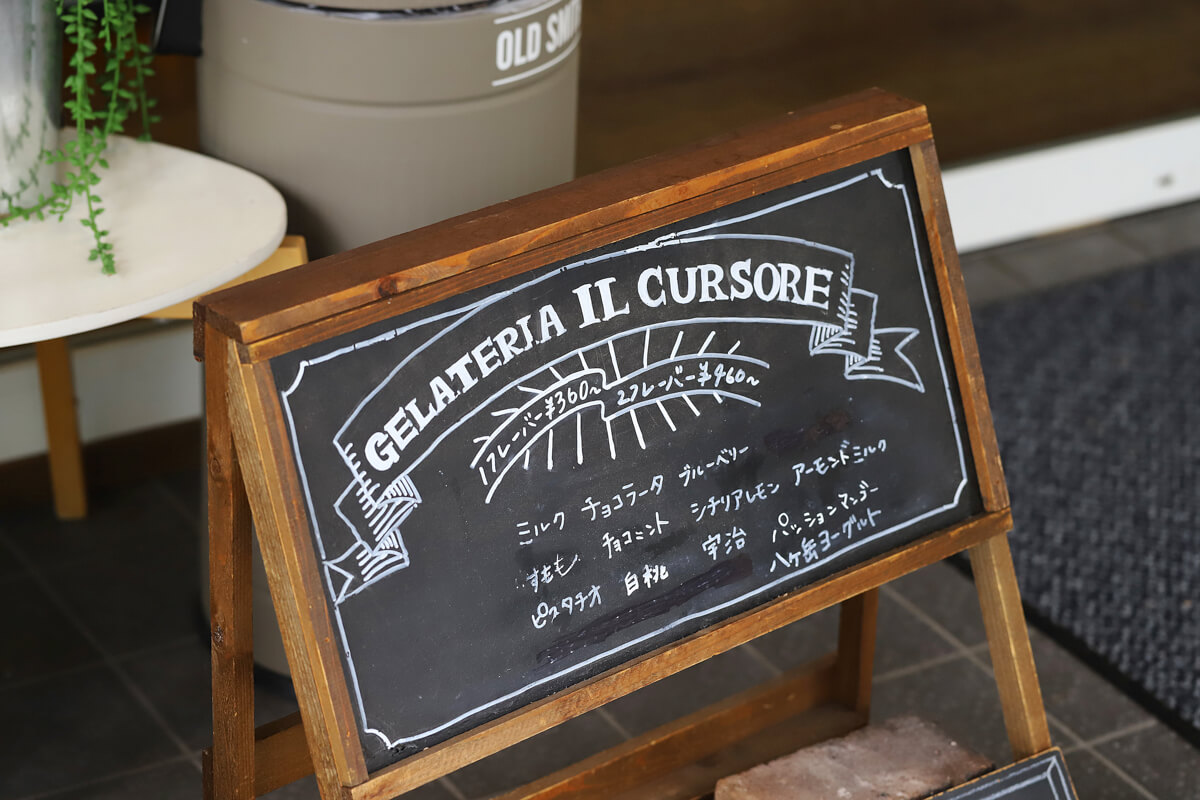 OLD SMIT
GELATERIA IL CURSORE
1フレーバー¥360〜 2フレーバー¥460〜
ミルク チョコラータ ブルーベリー アーモンドミルク
すもも チョコミント シチリアレモン パッションマンゴー
ピスタチオ 白桃 宇治 八ケ岳ヨーグルト